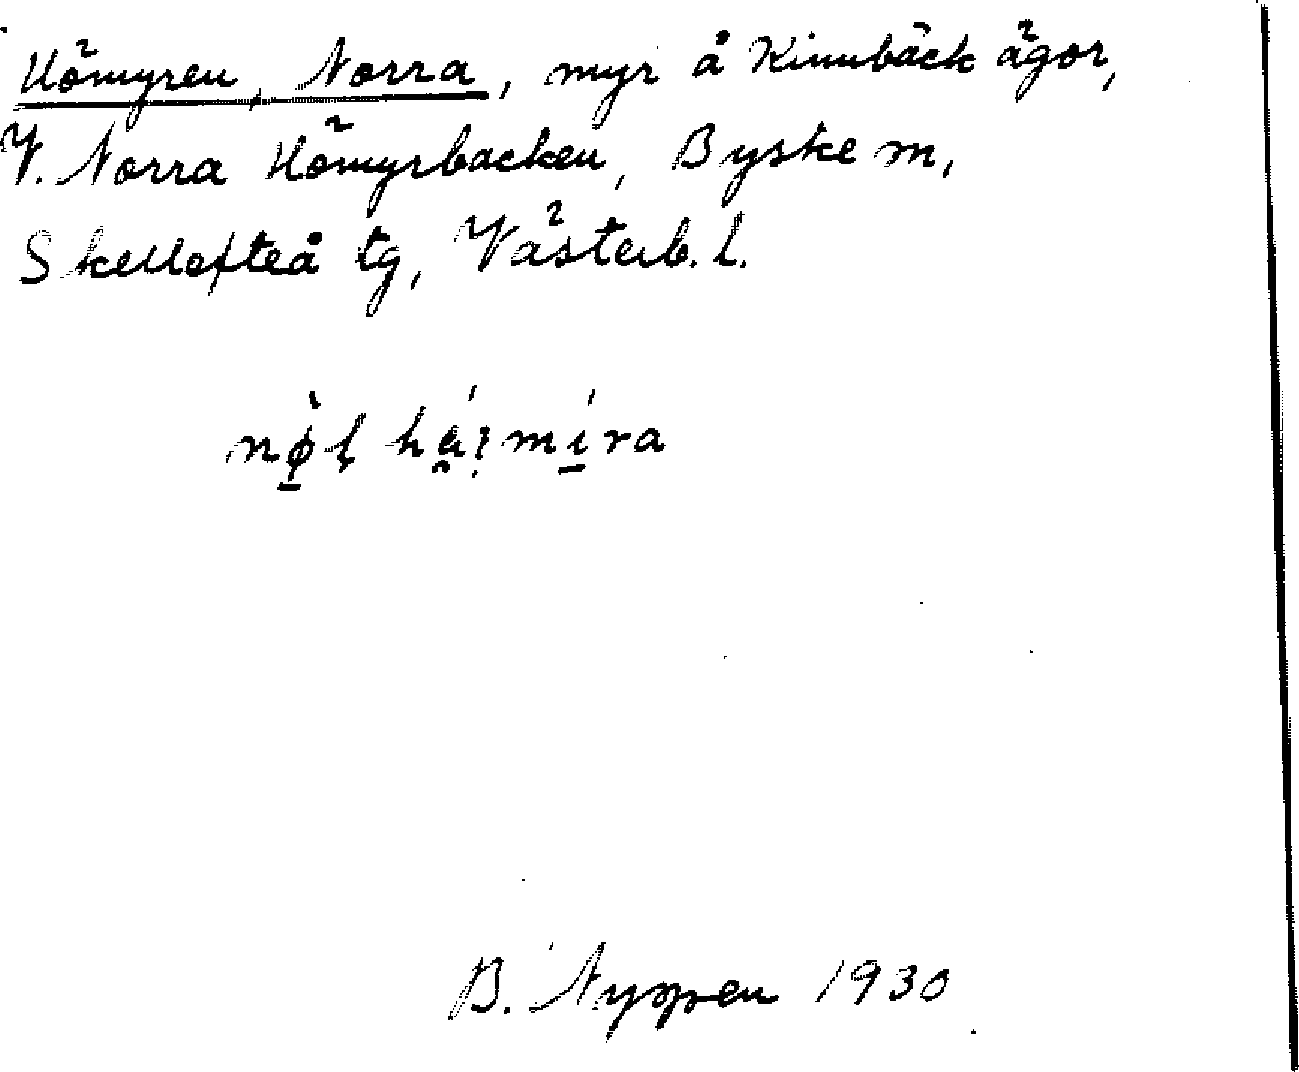 Hömyren, Norra, myr å Kinnbäck ägor,
V. Norra Hömyrbacken, Byske sn,
Skellefteå tg, Västerb. l.
B. Nyppen 1930